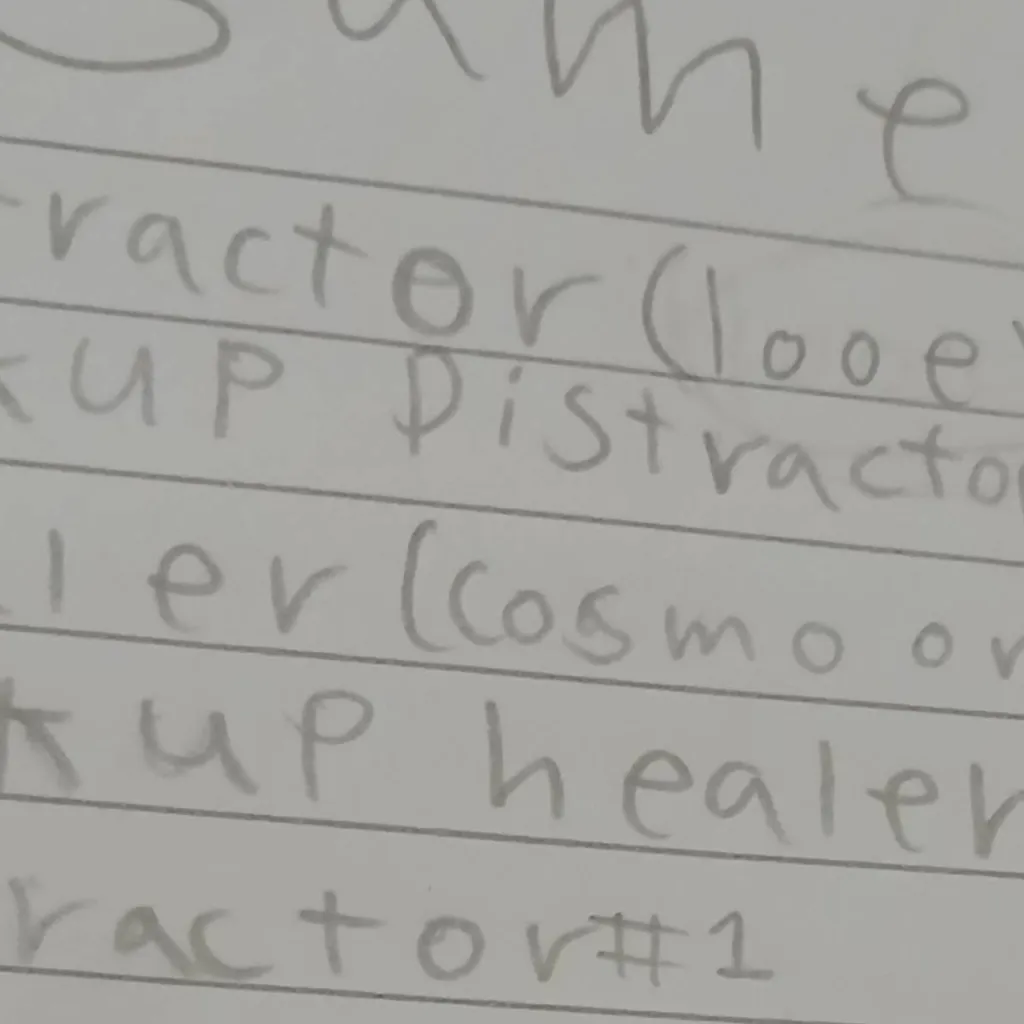 Same
ractor (looey
kup Distractor
ler (Cosmo or
kup healer
ractor #1